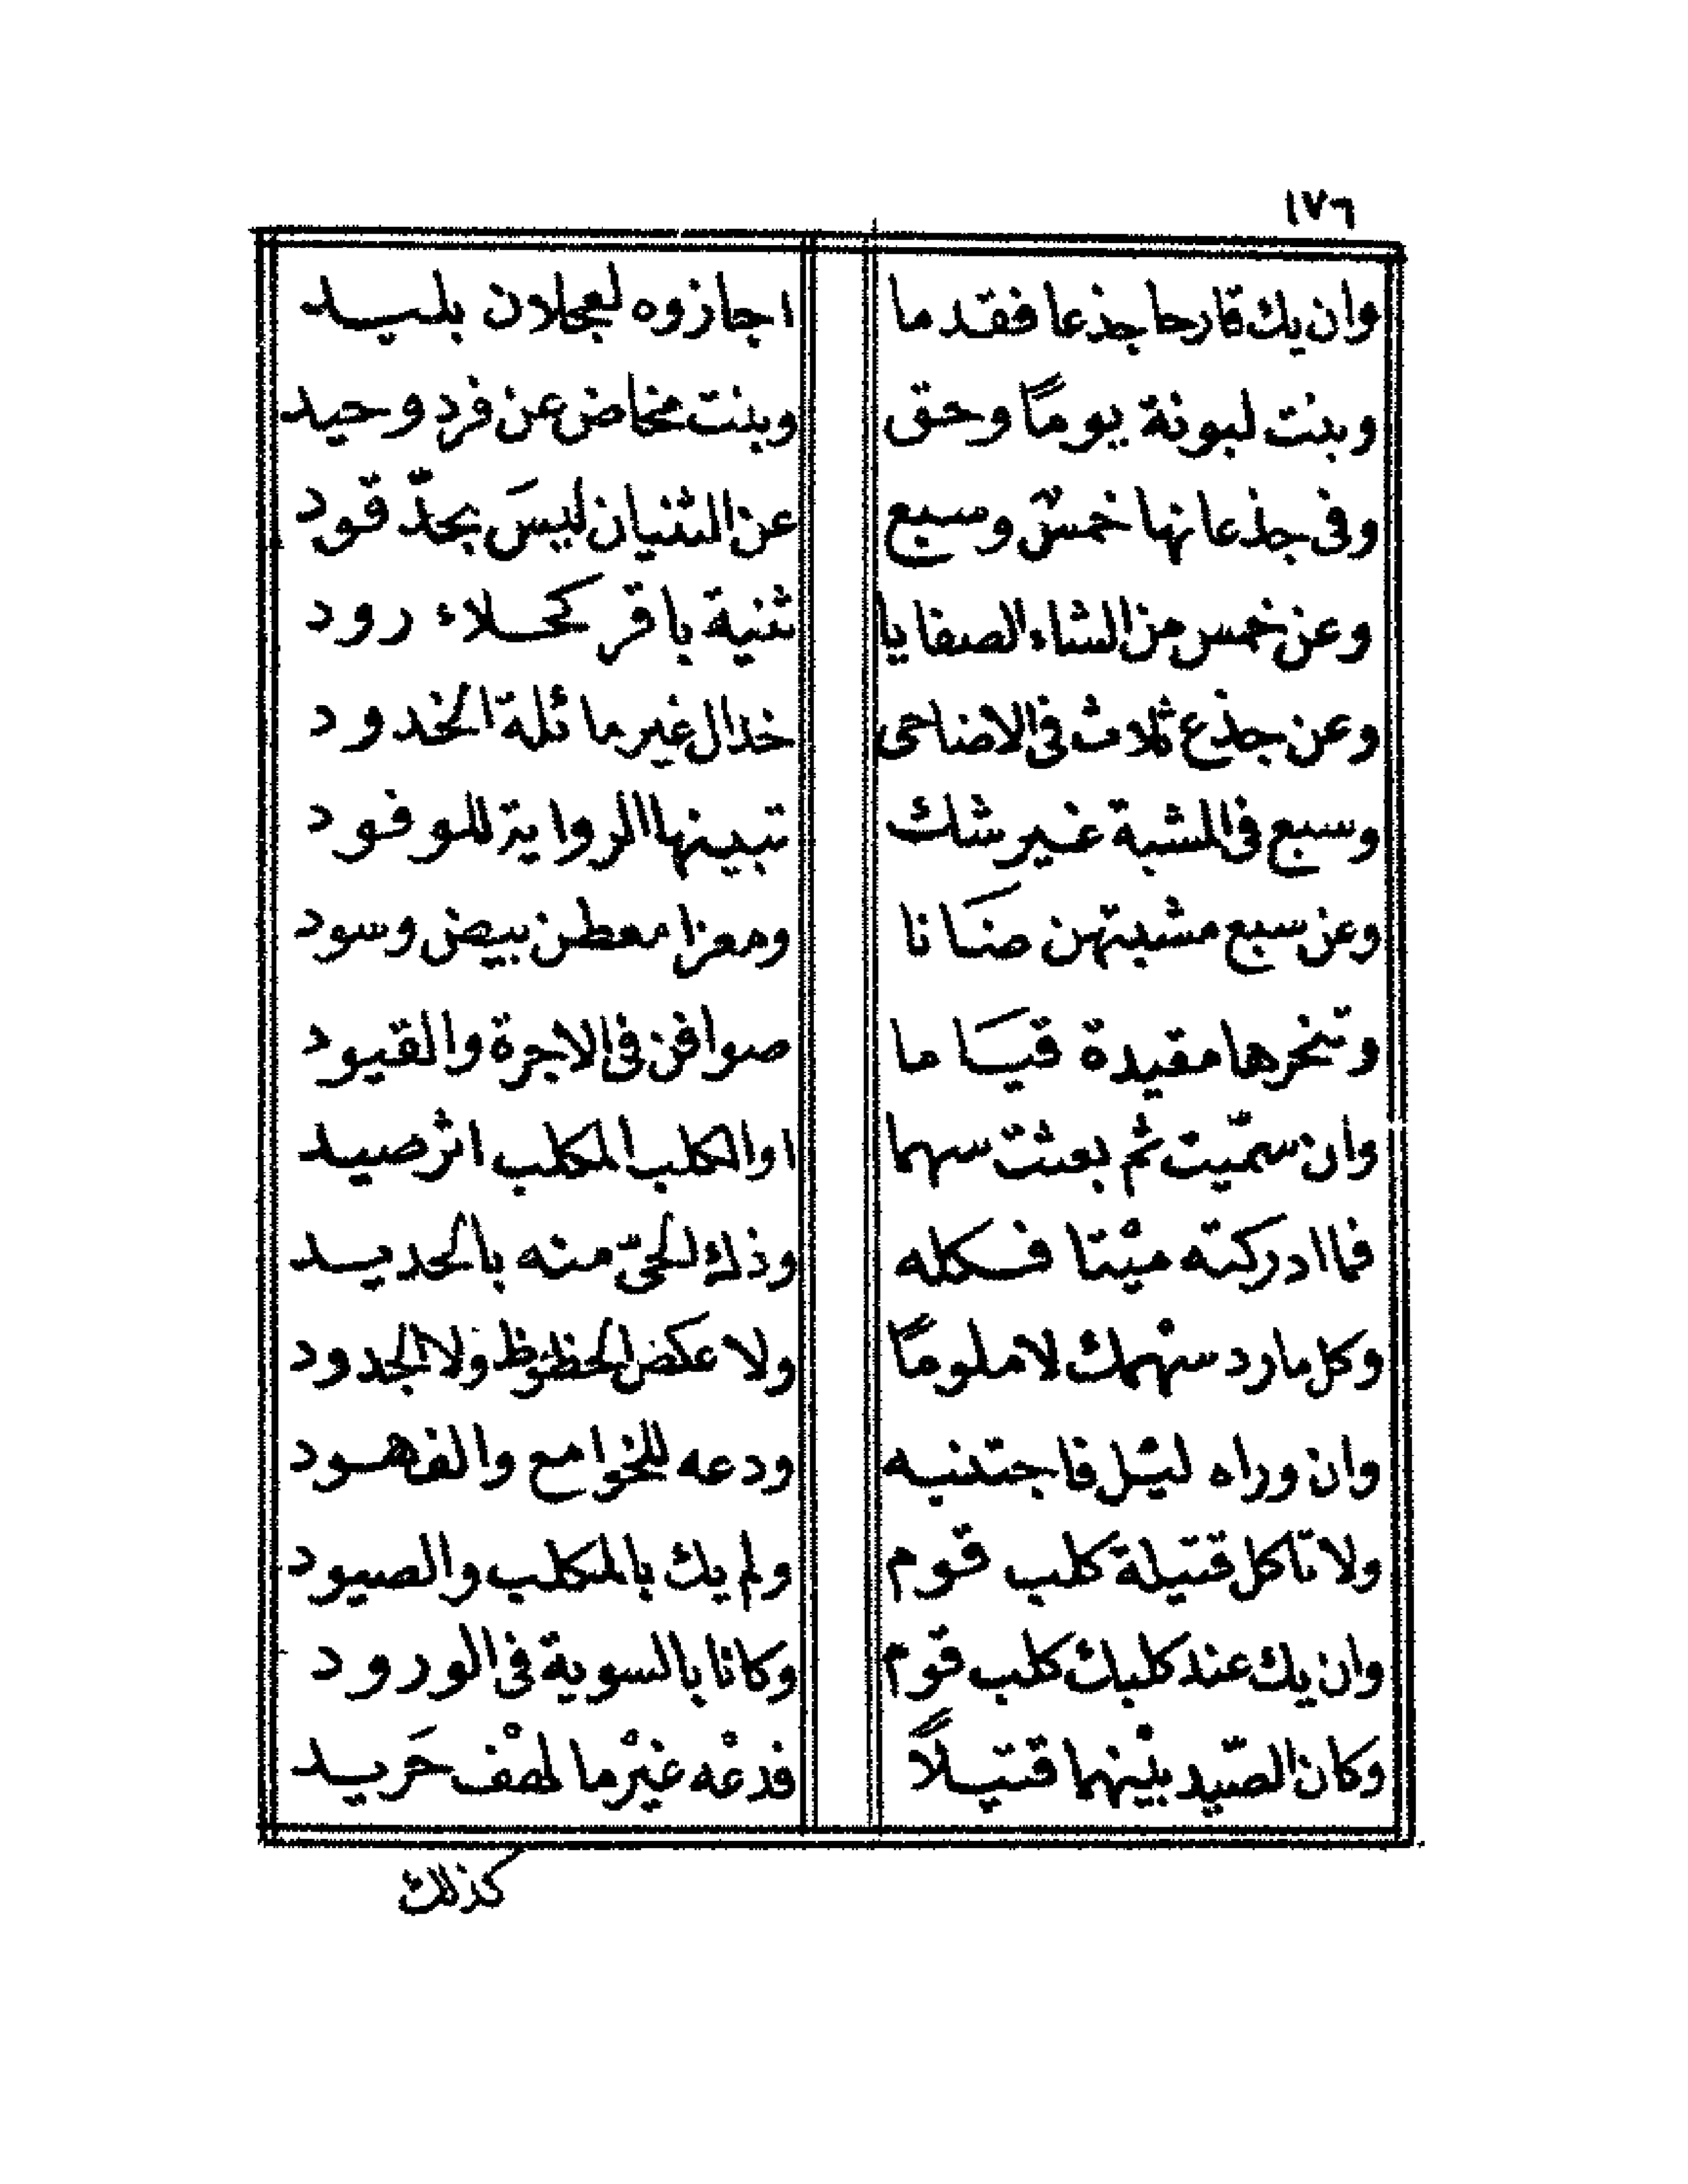 ١٧٦
وان يك قارحا جذعا فقد ما اجازوه لعجلان بليد
وبنت لبونة يومًا وحق وبنت مخاض عن فرد وحيد
وفى جذعانها خمسٌ وسبع عن الثنيان ليسَ بحدّ قود
وعن خمس من الشاء الصفايا ثنية باقر كحلاء رود
وعن جذع ثلاث فى الاضاحى خدال غير مائلة الخدود
وسبع فى المشبة غير شك تبينها الرواية للوفود
وعن سبع مشبتهن ضَانا ومعزا معطن بيض وسود
وتنحرها مقيدة قيَاما صوافن فى الاجرة والقيود
وان سمّيت ثم بعثت سهما او الكلب المكلب اثر صيد
فما ادركته ميْتا فكله وذك الحىّ منه بالحديد
وكل مارد سهْمك لا ملومًا ولا عكض الحظوظ ولا الجدود
وان وراه ليْل فاجتنبه ودعه للخوامع والفهود
ولا تاكل قتيلة كلب قوم ولم يك بالمكلب والصيود
وان يك عند كلبك كلب قوم وكانا بالسوية فى الورود
وكان الصّيد بيْنهما قتيلًا فدعْه غيْر ما لهْف حَريد
كذلك